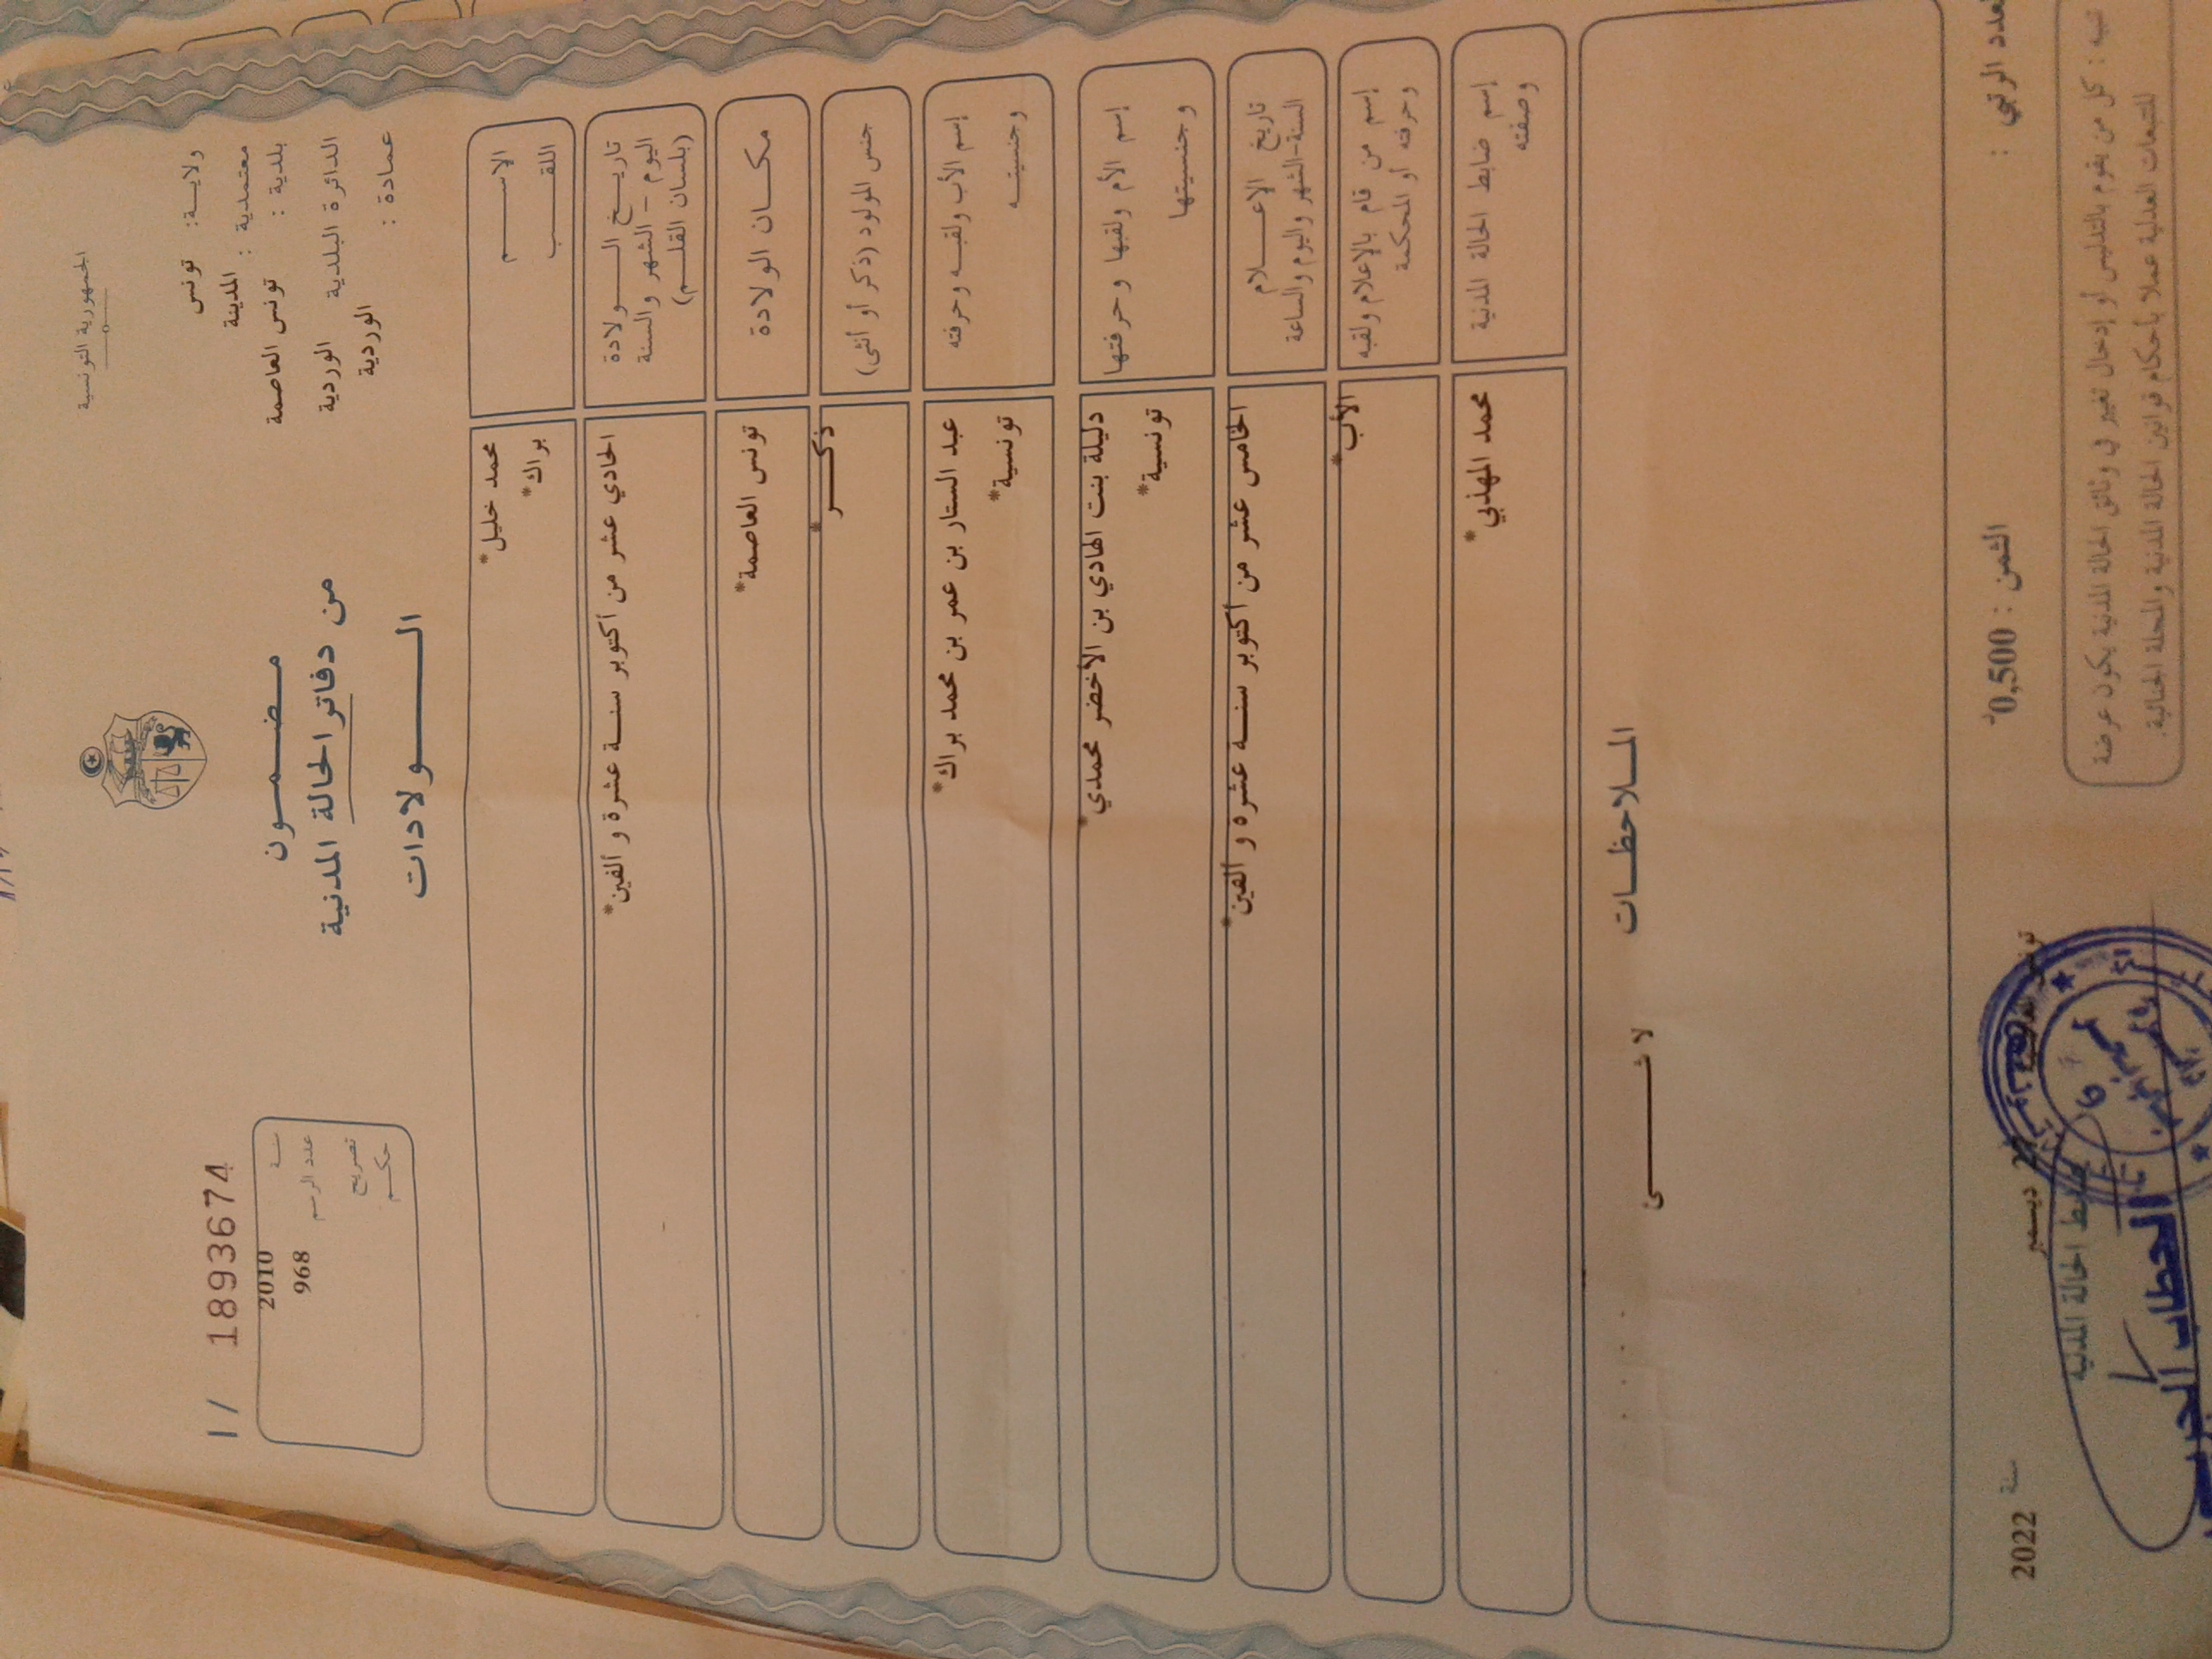 الجمهورية التونسية
ولايـــة: تونس
معتمدية : المدينة
بلدية : تونس العاصمة
الدائرة البلدية الوردية
عمادة : الوردية
مـضـمــون
من دفاتر الحالة المدنية
الــولادات
I/ 1893674
سنــة 2010
عدد الرسم 968
تصريح
حكــم
الاســـم محمد خليل*
اللقــب براك*
تاريــخ الــولادة
اليوم - الشهر والسنة
(بلسان القلــم)
الحادي عشر من أكتوبر سنــة عشرة و ألفين*
مكــان الولادة تونس العاصمة*
جنس المولود (ذكر أو أنثى) ذكــر*
إسم الأب ولقبــه وحرفته عبد الستار بن عمر بن محمد براك*
وجنسيتــه تونسية*
إسم الأم ولقبها وحرفتها دليلة بنت الهادي بن الأخضر محمدي*
وجنسيتها تونسية*
تاريخ الإعــلام
السنة-الشهر واليوم والساعة
الخامس عشر من أكتوبر سنــة عشرة و ألفين*
إسم من قام بالإعلام ولقبه
وحرفته أو المحكمة
الأب*
إسم ضابط الحالة المدنية
وصفته
محمد المهذبي*
المــلاحظــات
لا شــــئ
العدد الرتبي :
الثمن : 0,500د
تونس
ديسمبر
سنة 2022
ضابط الحالة المدنية
تنبيه : كل من يقوم بالتدليس أو إدخال تغيير في وثائق الحالة المدنية يكون عرضة
للتتبعات العدلية عملا بأحكام قوانين الحالة المدنية والمجلة الجنائية.
الحطاب